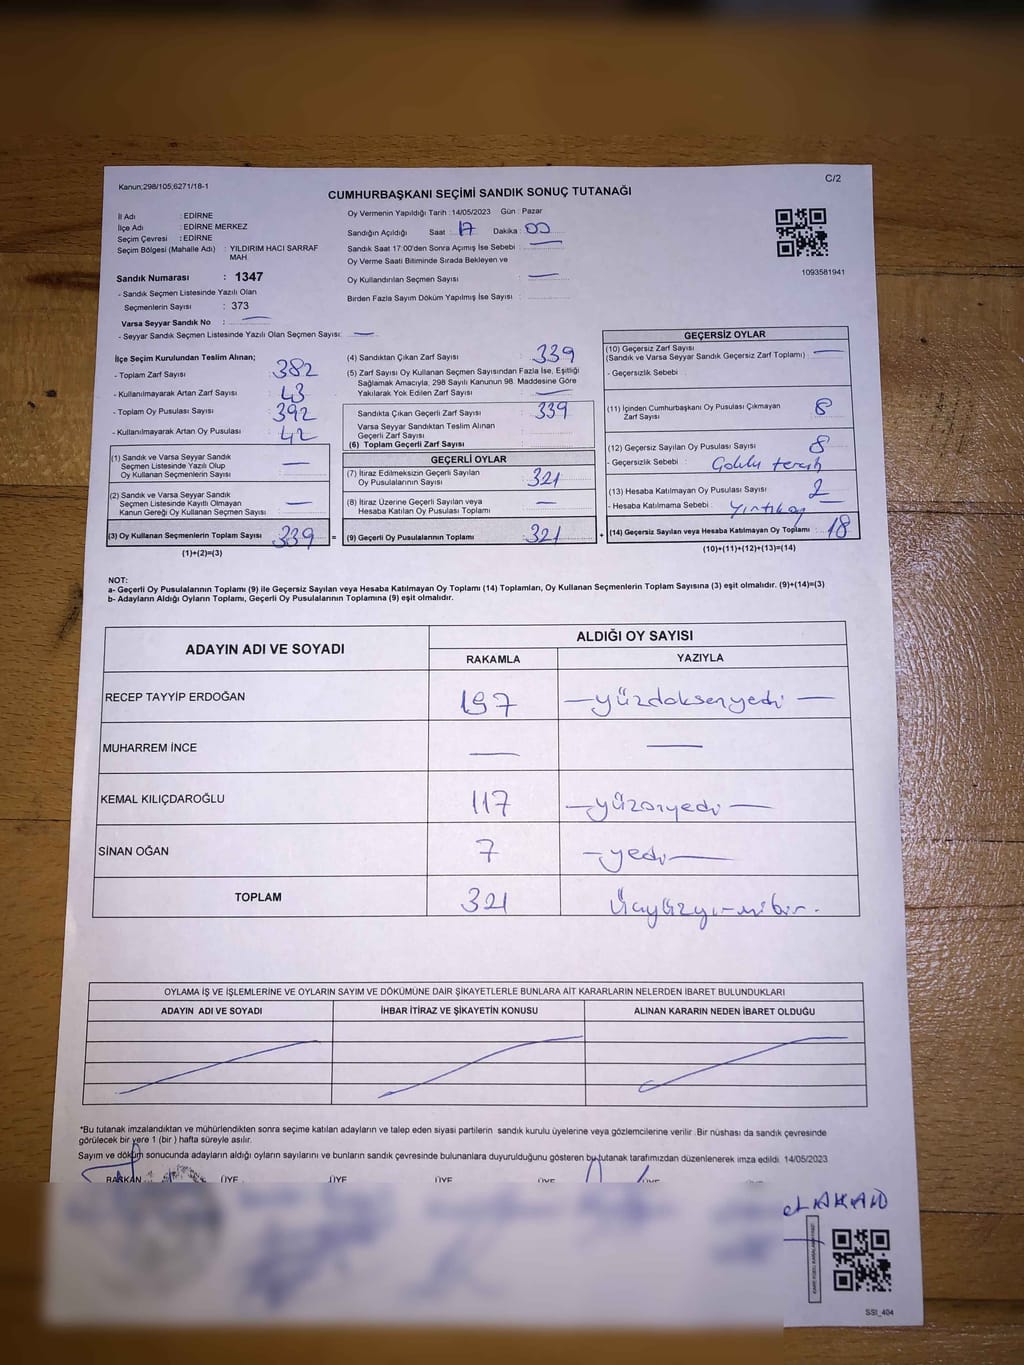 Kanun;298/105;6271/18-1
C/2
CUMHURBAŞKANI SEÇİMİ SANDIK SONUÇ TUTANAĞI
İl Adı : EDİRNE
İlçe Adı : EDİRNE MERKEZ
Seçim Çevresi : EDİRNE
Seçim Bölgesi (Mahalle Adı) : YILDIRIM HACI SARRAF
MAH.
Sandık Numarası : 1347
- Sandık Seçmen Listesinde Yazılı Olan
Seçmenlerin Sayısı : 373
Varsa Seyyar Sandık No :
- Seyyar Sandık Seçmen Listesinde Yazılı Olan Seçmen Sayısı:
Oy Vermenin Yapıldığı Tarih : 14/05/2023 Gün : Pazar
Sandığın Açıldığı Saat : 17 Dakika : 00
Sandık Saat 17:00'den Sonra Açımış İse Sebebi :
Oy Verme Saati Bitiminde Sırada Bekleyen ve
Oy Kullandırılan Seçmen Sayısı :
Birden Fazla Sayım Döküm Yapılmış İse Sayısı :
1093581941
İlçe Seçim Kurulundan Teslim Alınan;
- Toplam Zarf Sayısı : 382
- Kullanılmayarak Artan Zarf Sayısı : 43
- Toplam Oy Pusulası Sayısı : 392
- Kullanılmayarak Artan Oy Pusulası : 42
(1) Sandık ve Varsa Seyyar Sandık
Seçmen Listesinde Yazılı Olup
Oy Kullanan Seçmenlerin Sayısı
(2) Sandık ve Varsa Seyyar Sandık
Seçmen Listesinde Kayıtlı Olmayan
Kanun Gereği Oy Kullanan Seçmen Sayısı
(3) Oy Kullanan Seçmenlerin Toplam Sayısı 339 =
(1)+(2)=(3)
(4) Sandıktan Çıkan Zarf Sayısı : 339
(5) Zarf Sayısı Oy Kullanan Seçmen Sayısından Fazla İse, Eşitliği
Sağlamak Amacıyla, 298 Sayılı Kanunun 98. Maddesine Göre
Yakılarak Yok Edilen Zarf Sayısı :
Sandıkta Çıkan Geçerli Zarf Sayısı : 339
Varsa Seyyar Sandıktan Teslim Alınan
Geçerli Zarf Sayısı :
(6) Toplam Geçerli Zarf Sayısı :
GEÇERLİ OYLAR
(7) İtiraz Edilmeksizin Geçerli Sayılan
Oy Pusulalarının Sayısı : 321
(8) İtiraz Üzerine Geçerli Sayılan veya
Hesaba Katılan Oy Pusulası Toplamı :
(9) Geçerli Oy Pusulalarının Toplamı : 321 +
GEÇERSİZ OYLAR
(10) Geçersiz Zarf Sayısı
(Sandık ve Varsa Seyyar Sandık Geçersiz Zarf Toplamı) :
- Geçersizlik Sebebi :
(11) İçinden Cumhurbaşkanı Oy Pusulası Çıkmayan
Zarf Sayısı : 8
(12) Geçersiz Sayılan Oy Pusulası Sayısı : 8
- Geçersizlik Sebebi : tercih
(13) Hesaba Katılmayan Oy Pusulası Sayısı : 2
- Hesaba Katılmama Sebebi :
(14) Geçersiz Sayılan veya Hesaba Katılmayan Oy Toplamı : 18
(10)+(11)+(12)+(13)=(14)
NOT:
a- Geçerli Oy Pusulalarının Toplamı (9) ile Geçersiz Sayılan veya Hesaba Katılmayan Oy Toplamı (14) Toplamları, Oy Kullanan Seçmenlerin Toplam Sayısına (3) eşit olmalıdır. (9)+(14)=(3)
b- Adayların Aldığı Oyların Toplamı, Geçerli Oy Pusulalarının Toplamına (9) eşit olmalıdır.
ADAYIN ADI VE SOYADI
ALDIĞI OY SAYISI
RAKAMLA YAZIYLA
RECEP TAYYİP ERDOĞAN 197 yüzdoksanyedi
MUHARREM İNCE
KEMAL KILIÇDAROĞLU 117 yüzonyedi
SİNAN OĞAN 7 yedi
TOPLAM 321 Üçyüzyirmibir.
OYLAMA İŞ VE İŞLEMLERİNE VE OYLARIN SAYIM VE DÖKÜMÜNE DAİR ŞİKAYETLERLE BUNLARA AİT KARARLARIN NELERDEN İBARET BULUNDUKLARI
ADAYIN ADI VE SOYADI İHBAR İTİRAZ VE ŞİKAYETİN KONUSU ALINAN KARARIN NEDEN İBARET OLDUĞU
*Bu tutanak imzalandıktan ve mühürlendikten sonra seçime katılan adayların ve talep eden siyasi partilerin sandık kurulu üyelerine veya gözlemcilerine verilir. Bir nüshası da sandık çevresinde
görülecek bir yere 1 (bir ) hafta süreyle asılır.
Sayım ve döküm sonucunda adayların aldığı oyların sayılarını ve bunların sandık çevresinde bulunanlara duyurulduğunu gösteren bu tutanak tarafımızdan düzenlenerek imza edildi. 14/05/2023
BAŞKAN ÜYE ÜYE ÜYE ÜYE ÜYE
SSİ_404